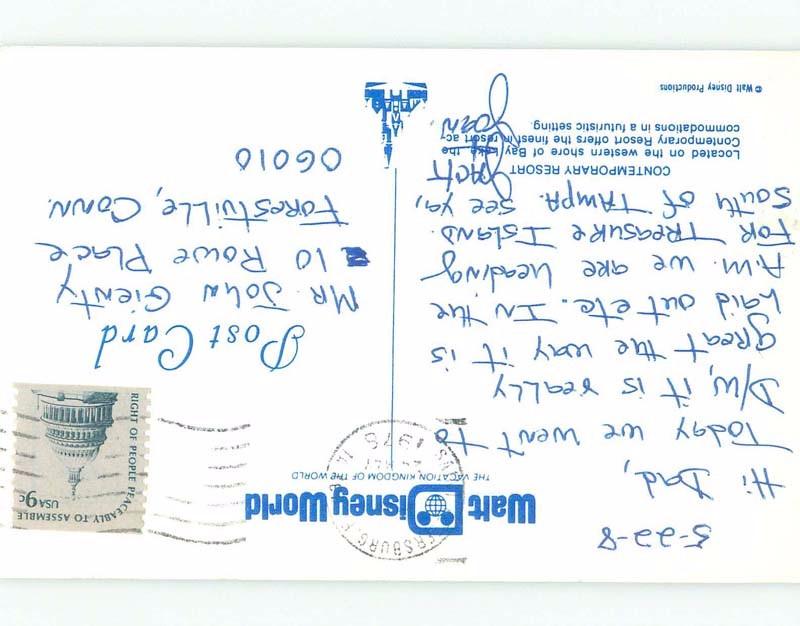 5-22-8
Walt Disney World
THE VACATION KINGDOM OF THE WORLD
Hi Dad,
Today we went to
D/W, it is really
great the way it is
Laid out etc. In the
A.M. we are heading
For Treasure Island.
South of Tampa. See ya,
Jack
Joan
CONTEMPORARY RESORT
Located on the western shore of Bay Lake the
Contemporary Resort offers the finest in resort ac-
commodations in a futuristic setting.
© Walt Disney Productions
1978
RIGHT OF PEOPLE PEACEABLY TO ASSEMBLE
USA 9c
Post Card
Mr. John Gienty
10 Rowe Place
Forestville, Conn.
06010